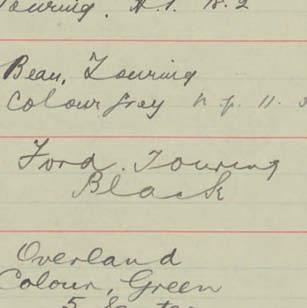 Touring. H.P. 18.2
Bean, Touring
Colour Grey H.P. 11.
Ford. Touring
Black
Overland
Colour, Green
5 Seater